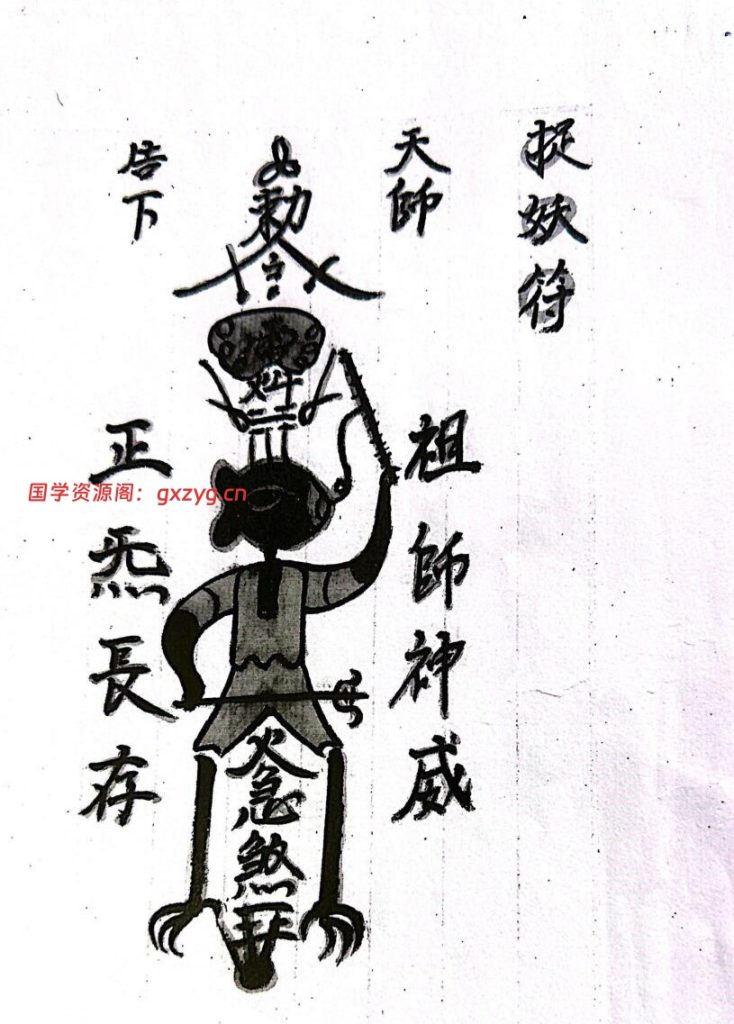 捉妖符
天師
祖師神威
敕令
火急煞
告下
正炁長存
国学资源阁：gxzyg.cn